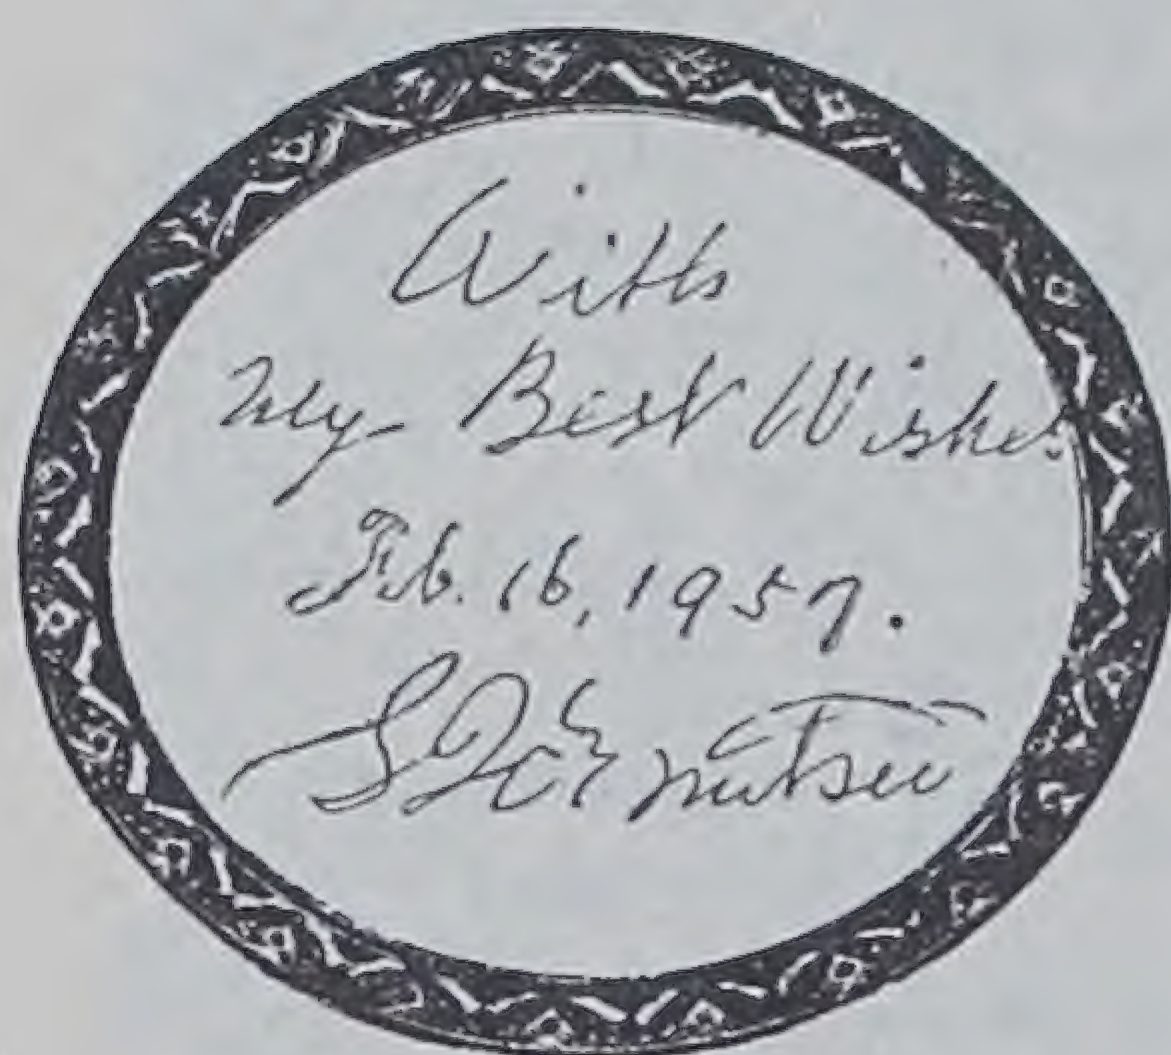 With
My Best Wishes
Feb. 16, 1957.